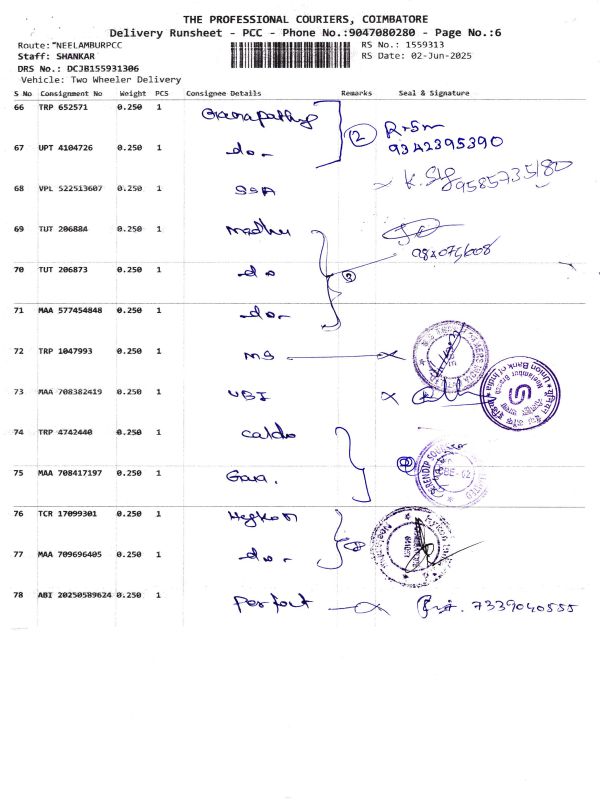 THE PROFESSIONAL COURIERS, COIMBATORE
Delivery Runsheet - PCC - Phone No.:9047080280 - Page No.:6
Route: NEELAMBURPCC RS No.: 1559313
Staff: SHANKAR RS Date: 02-Jun-2025
DRS No.: DCJB155931306
Vehicle: Two Wheeler Delivery
S No Consignment No Weight PCS Consignee Details Remarks Seal & Signature
66 TRP 652571 0.250 1 Ganapathy 2
67 UPT 4104726 0.250 1 do- 9342395390
68 VPL 522513607 0.250 1 SSA 9585735180
69 TUT 206884 0.250 1 Madhu
70 TUT 206873 0.250 1 do 3
71 MAA 577454848 0.250 1 do-
72 TRP 1047993 0.250 1 MS
73 MAA 708382419 0.250 1 UBI Union Bank of India
74 TRP 4742440 0.250 1
75 MAA 708417197 0.250 1
76 TCR 17099301 0.250 1
77 MAA 709696405 0.250 1 do-
78 ABI 20250589624 0.250 1 Perfect 7339040555